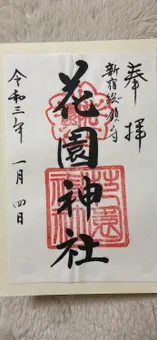 奉拝
新宿総鎮守
花園神社
令和三年 一月 四日